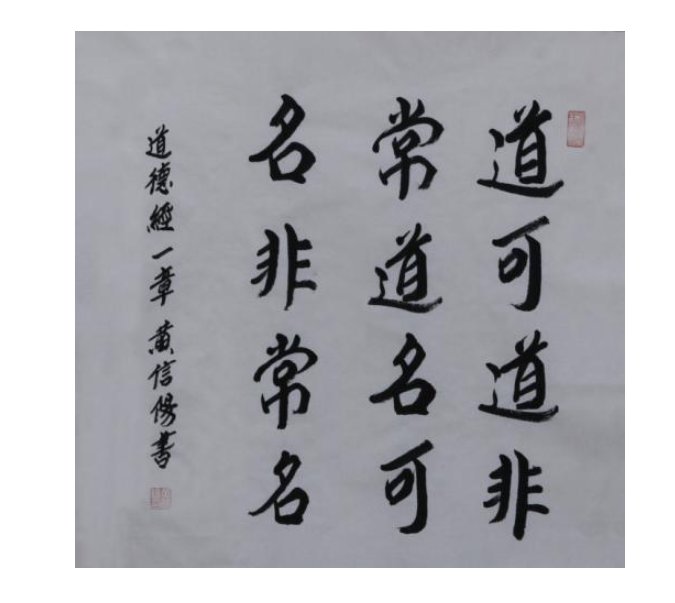 道可道非
常道名可
名非常名
道德經一章黄信陽書